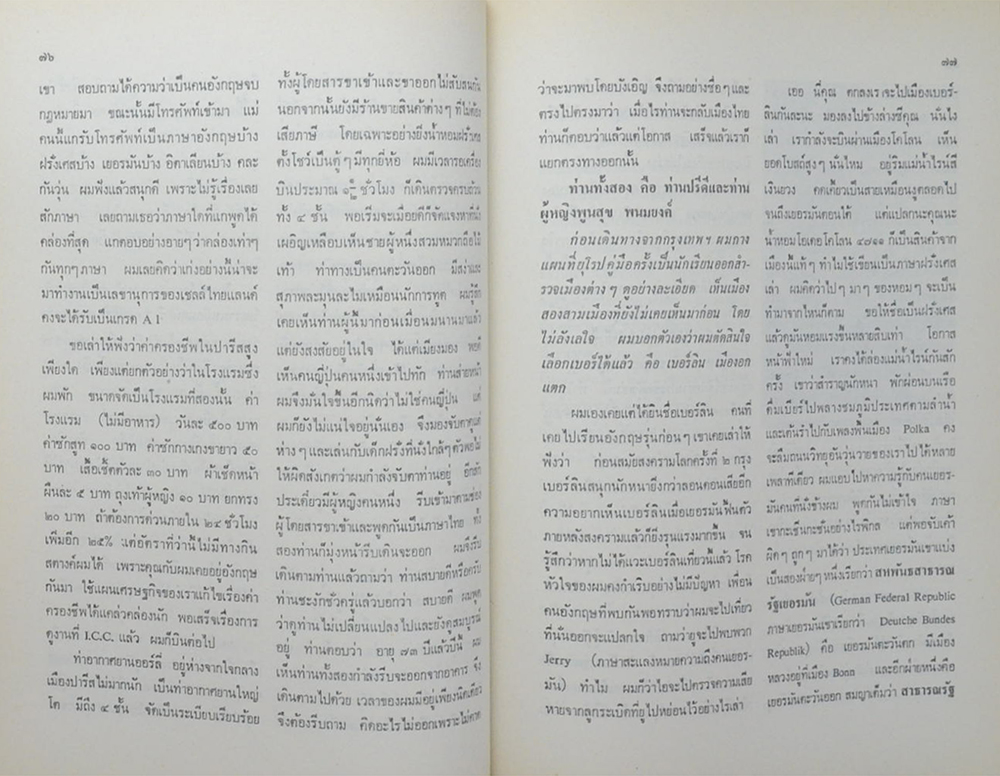 ๗๖
เขา สอบถามได้ความว่าเป็นคนอังกฤษจบ
กฎหมายมา ขณะนั้นมีโทรศัพท์เข้ามา แม่
คนนี้แกรับโทรศัพท์เป็นภาษาอังกฤษบ้าง
ฝรั่งเศสบ้าง เยอรมันบ้าง อิตาเลียนบ้าง คละ
กันวุ่น ผมฟังแล้วสนุกดี เพราะไม่รู้เรื่องเลย
สักภาษา เลยถามเธอว่าภาษาใดที่แกพูดได้
คล่องที่สุด แกตอบอย่างอายๆว่าคล่องเท่าๆ
กันทุกๆภาษา ผมเลยคิดว่าเก่งอย่างนี้น่าจะ
มาทำงานเป็นเลขานุการของเชลล์ไทยแลนด์
คงจะได้รับเป็นเกรด A 1
ขอเล่าให้ฟังว่าค่าครองชีพในปารีสสูง
เพียงใด เพียงแต่ยกตัวอย่างว่าในโรงแรมซึ่ง
ผมพัก ขนาดจัดเป็นโรงแรมที่สองนั้น ค่า
โรงแรม (ไม่มีอาหาร) วันละ ๕๐๐ บาท
ค่าซักสูท ๑๐๐ บาท ค่าซักกางเกงขายาว ๕๐
บาท เสื้อเช้ตตัวละ ๓๐ บาท ผ้าเช็ดหน้า
ผืนละ ๕ บาท ถุงเท้าผู้หญิง ๑๐ บาท ยกทรง
๒๐ บาท ถ้าต้องการด่วนภายใน ๒๔ ชั่วโมง
เพิ่มอีก ๒๕% แต่อัตราที่ว่านี้ไม่มีทางกิน
สตางค์ผมได้ เพราะคุณกับผมเคยอยู่อังกฤษ
กันมา ใช้แผนเศรษฐกิจของเราแก้ไขเรื่องค่า
ครองชีพได้แคล่วคล่องนัก พอเสร็จเรื่องการ
ดูงานที่ I.C.C. แล้ว ผมก็บินต่อไป
ท่าอากาศยานออร์ลี่ อยู่ห่างจากใจกลาง
เมืองปารีสไม่มากนัก เป็นท่าอากาศยานใหญ่
โต มีถึง ๔ ชั้น จัดเป็นระเบียบเรียบร้อย
ทั้งผู้โดยสารขาเข้าและขาออกไม่สับสนกัน
นอกจากนั้นยังมีร้านขายสินค้าต่างๆ ที่ไม่ต้อง
เสียภาษี โดยเฉพาะอย่างยิ่งน้ำหอมฝรั่งเศส
ตั้งโชว์เป็นตู้ๆ มีทุกยี่ห้อ ผมมีเวลารอเครื่อง
บินประมาณ ชั่วโมง ก็เดินตรวจครบถ้วน
ทั้ง ๔ ชั้น พอเริ่มจะเมื่อยดีก็จัดแจงหาที่นั่ง
เผอิญเหลือบเห็นชายผู้หนึ่งสวมหมวกถือไม้
เท้า ท่าทางเป็นคนตะวันออก มีสง่าและ
สุภาพละมุนละไมเหมือนนักการทูต ผมรู้สึก
เคยเห็นท่านผู้นี้มาก่อนเมื่อนมนานมาแล้ว
แต่ยังสงสัยอยู่ในใจ ได้แต่เมียงมอง พอดี
เห็นคนญี่ปุ่นคนหนึ่งเข้าไปทัก ท่านส่ายหน้า
ผมจึงมั่นใจขึ้นอีกนิดว่าไม่ใช่คนญี่ปุ่น แต่
ผมก็ยังไม่แน่ใจอยู่นั่นเอง จึงมองจับตาดูแต่
ห่างๆและเล่นกับเด็กฝรั่งที่นั่งใกล้ๆตัวพอไม่
ให้ผิดสังเกตว่าผมกำลังจับตาท่านอยู่ อีกสัก
ประเดี๋ยวมีผู้หญิงคนหนึ่ง รีบเข้ามาตามช่อง
ผู้โดยสารขาเข้าและพูดกันเป็นภาษาไทย ทั้ง
สองท่านก็มุ่งหน้ารีบเดินจะออก ผมจึงรีบ
เดินตามท่านแล้วถามว่า ท่านสบายดีหรือครับ
ท่านชะงักชั่วครู่แล้วบอกว่า สบายดี ผมพูด
ว่าดูท่านไม่เปลี่ยนแปลงไปและยังดูสมบูรณ์
อยู่ ท่านตอบว่า อายุ ๗๓ ปีแล้วปีนี้ ผม
เห็นท่านทั้งสองกำลังรีบจะออกจากอาคาร จึง
เดินตามไปด้วย เวลาของผมมีอยู่เพียงนิดเดียว
จึงต้องรีบถาม คิดอะไรไม่ออกเพราะไม่คาด
๗๗
ว่าจะมาพบโดยบังเอิญ จึงถามอย่างซื่อๆและ
ตรงไปตรงมาว่า เมื่อไรท่านจะกลับเมืองไทย
ท่านก็ตอบว่าแล้วแต่โอกาส เสร็จแล้วเราก็
แยกตรงทางออกนั้น
ท่านทั้งสอง คือ ท่านปรีดีและท่าน
ผู้หญิงพูนสุข พนมยงค์
ก่อนเดินทางจากกรุงเทพฯ ผมกาง
แผนที่ยุโรปคู่มือครั้งเป็นนักเรียนออกสำ-
รวจเมืองต่างๆ ดูอย่างละเอียด เห็นเมือง
สองสามเมืองที่ยังไม่เคยเห็นมาก่อน โดย
ไม่ลังเลใจ ผมบอกตัวเองว่าผมตัดสินใจ
เลือกเบอร์ได้แล้ว คือ เบอร์ลิน เมืองอก
แตก
ผมเองเคยแต่ได้ยินชื่อเบอร์ลิน คนที่
เคยไปเรียนอังกฤษรุ่นก่อนๆ เขาเคยเล่าให้
ฟังว่า ก่อนสมัยสงครามโลกครั้งที่ ๒ กรุง
เบอร์ลินสนุกนักหนายิ่งกว่าลอนดอนเสียอีก
ความอยากเห็นเบอร์ลินเมื่อเยอรมันฟื้นตัว
ภายหลังสงครามแล้วก็ยิ่งรุนแรงมากขึ้น จน
รู้สึกว่าหากไม่ได้แวะเบอร์ลินเที่ยวนี้แล้ว โรค
หัวใจของผมคงกำเริบอย่างไม่มีปัญหา เพื่อน
คนอังกฤษที่พบกันพอทราบว่าผมจะไปเที่ยว
ที่นั่นออกจะแปลกใจ ถามว่ายูจะไปพบพวก
Jerry (ภาษาสะแลงหมายความถึงคนเยอร-
มัน) ทำไม ผมก็ว่าไอจะไปตรวจความเสีย
หายจากลูกระเบิดที่ยูไปหย่อนไว้อย่างไรเล่า
เออ นี่คุณ ตกลงเราจะไปเมืองเบอร์-
ลินกันละนะ มองลงไปข้างล่างซีคุณ นั่นไง
เล่า เรากำลังจะบินผ่านเมืองโคโลน เห็น
ยอดโบสถ์สูงๆ นั่นไหม อยู่ริมแม่น้ำไรน์สี
เงินยวง คดเคี้ยวเป็นสายเหมือนงูตลอดไป
จนถึงเยอรมันตอนใต้ แต่แปลกนะคุณนะ
น้ำหอมโอเดอโคโลน ๔๗๑๑ ก็เป็นสินค้าจาก
เมืองนี้แท้ๆ ทำไมไม่ใช้เรียนเป็นภาษาฝรั่งเศส
เล่า ผมคิดว่าไปๆ มาๆ ของหอมๆ จะเป็น
ทำมาจากไหนก็ตาม ขอให้ชื่อเป็นฝรั่งเศส
แล้วดูมันหอมแรงขึ้นหลายสิบเท่า โอกาส
หน้าฟ้าใหม่ เราคงได้ล่องแม่น้ำไรน์กันสัก
ครั้ง เขาว่าสำราญนักหนา พักผ่อนบนเรือ
ดื่มเบียร์ไปพลางชมภูมิประเทศตามลำน้ำ
และเต้นรำไปกับเพลงพื้นเมือง Polka คง
จะลืมถนนวิทยุอันวุ่นวายของเราไปได้หลาย
เพลาทีเดียว ผมแอบไปหาความรู้กับคนเยอร-
มันคนที่นั่งข้างผม พูดกันไม่เข้าใจ ภาษา
เขากะเซ็นกะซั่นอย่างไรพิกล แต่พอจับเค้า
ผิดๆ ถูกๆ มาได้ว่า ประเทศเยอรมันเขาแบ่ง
เป็นสองฝ่ายๆ หนึ่งเรียกว่า สหพันธสาธารณ
รัฐเยอรมัน (German Federal Republic
ภาษาเยอรมันเขาเรียกว่า Deutche Bundes
Republik) คือ เยอรมันตะวันตก มีเมือง
หลวงอยู่ที่เมือง Bonn และอีกฝ่ายหนึ่งคือ
เยอรมันตะวันออก สมญาเต็มว่า สาธารณรัฐ